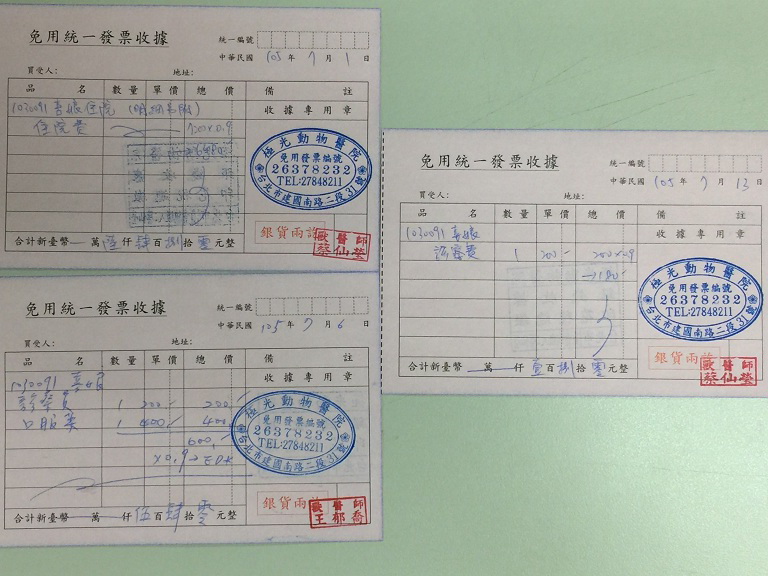 免用統一發票收據
統一編號
中華民國 105 年 7 月 1 日
買受人: 地址:
品 名 數量 單價 總價 備 註
收據專用章
住院費
極光動物醫院
免用發票編號
26378232
TEL:27848211
台北市建國南路二段31號
銀貨兩訖
獸醫師
蔡仙瑩
合計新臺幣 萬壹仟肆百捌拾零元整
免用統一發票收據
統一編號
中華民國 105 年 7 月 6 日
買受人: 地址:
品 名 數量 單價 總價 備 註
收據專用章
診察費 1 200 200
口服藥 1 400 400
600
極光動物醫院
免用發票編號
26378232
TEL:27848211
台北市建國南路二段31號
銀貨兩訖
獸醫師
王郁喬
合計新臺幣 萬 仟伍百肆拾零元整
免用統一發票收據
統一編號
中華民國 105 年 7 月 13 日
買受人: 地址:
品 名 數量 單價 總價 備 註
收據專用章
診察費 1 200 200×0.9
極光動物醫院
免用發票編號
26378232
TEL:27848211
台北市建國南路二段31號
銀貨兩訖
獸醫師
蔡仙瑩
合計新臺幣 萬 仟壹百捌拾零元整